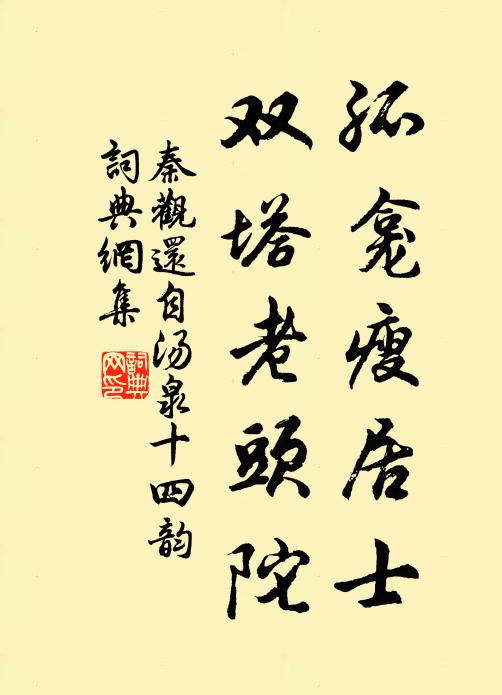 孤龛瘦居士
双塔老頭陀
秦觀還自汤泉十四韵
詞典網集
詞典
网印